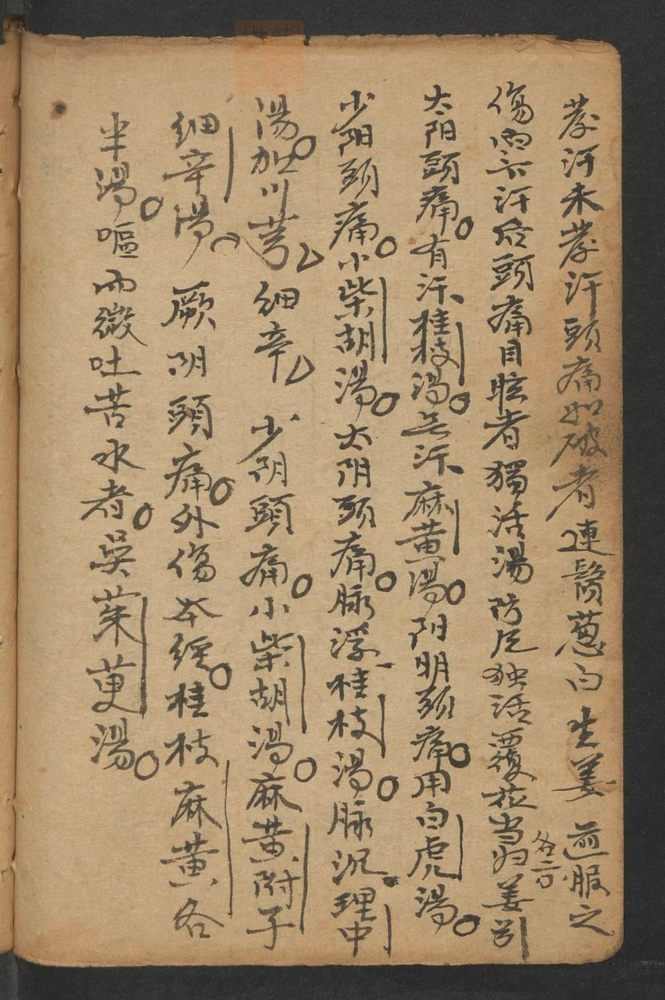 發汗未發汗頭痛如破者連鬚葱白生姜並服之
傷寒汗後頭痛目眩者獨活湯防風独活覆花当归姜引
各二分
太阳頭痛。有汗、桂枝湯。無汗、麻黄湯。阳明頭痛。用白虎湯。
少阳頭痛。小柴胡湯。太阴頭痛。脉浮桂枝湯。脉沉理中
湯。加川芎、細辛、少阴頭痛。小柴胡湯。麻黄附子
細辛湯。厥阴頭痛。外傷本經。桂枝麻黄各
半湯。嘔而微吐苦水者。吳茱萸湯。